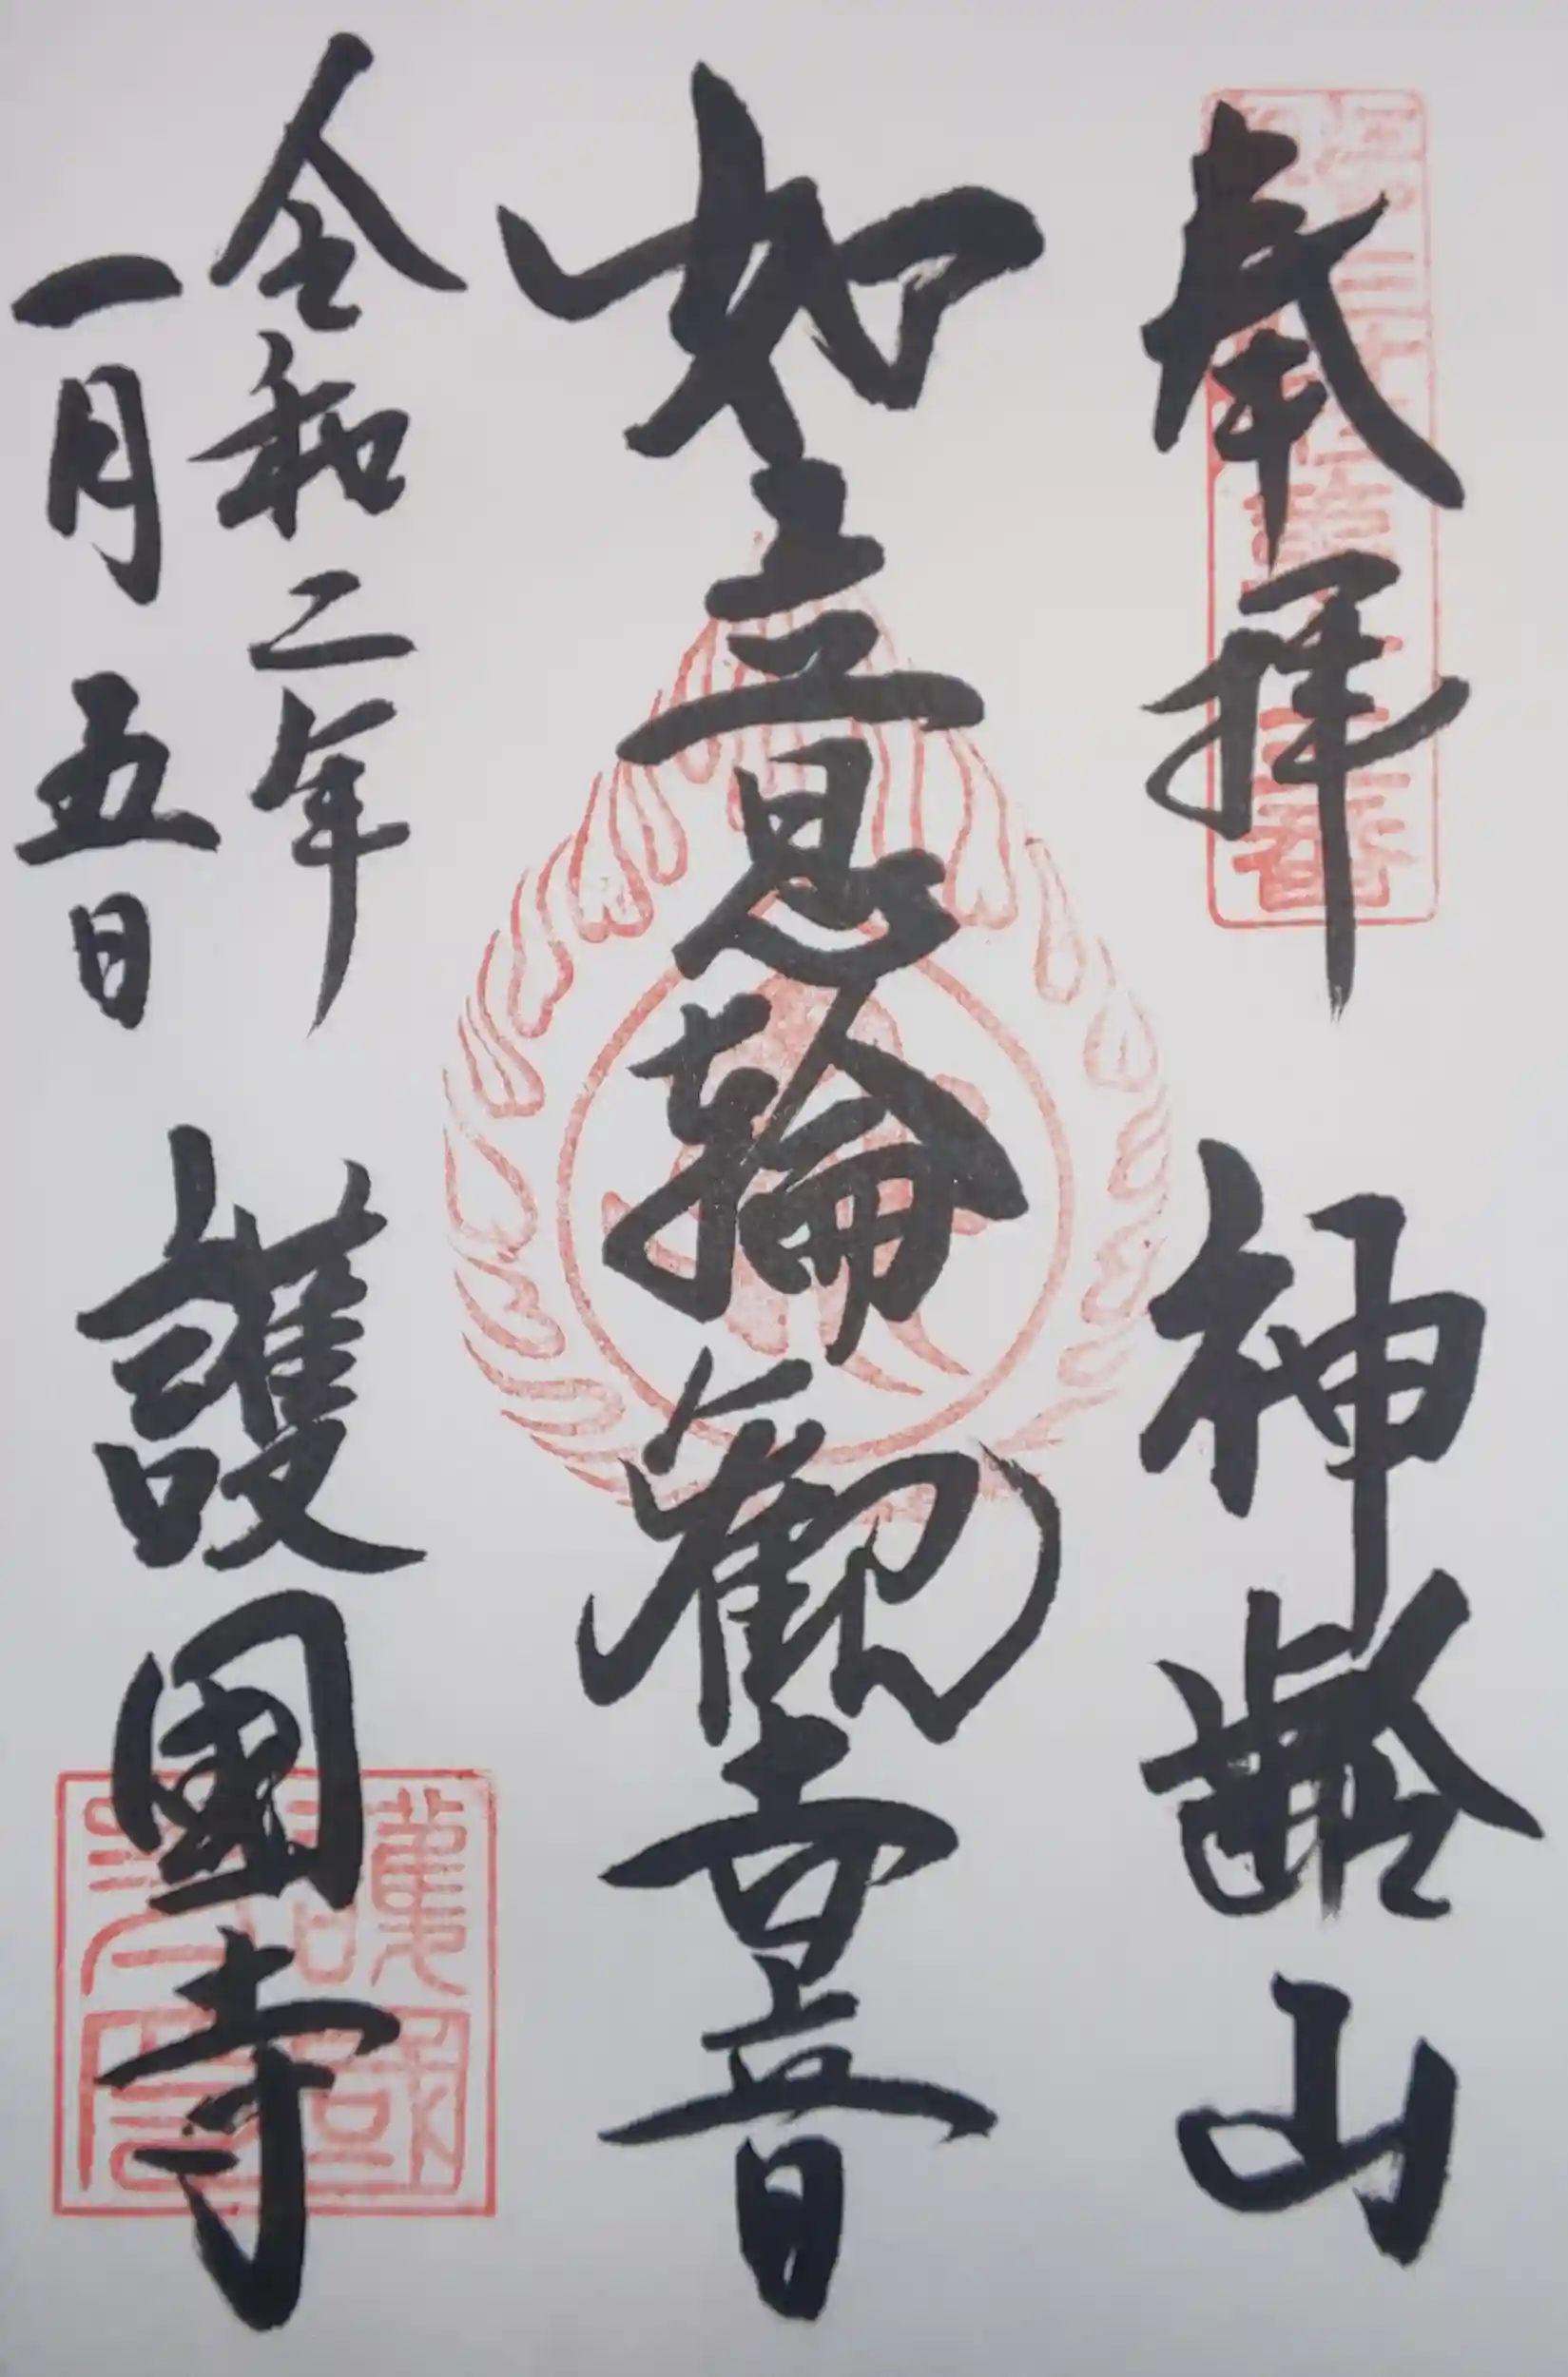 奉拝 神齢山
如意輪観世音
令和二年
一月五日
護國寺